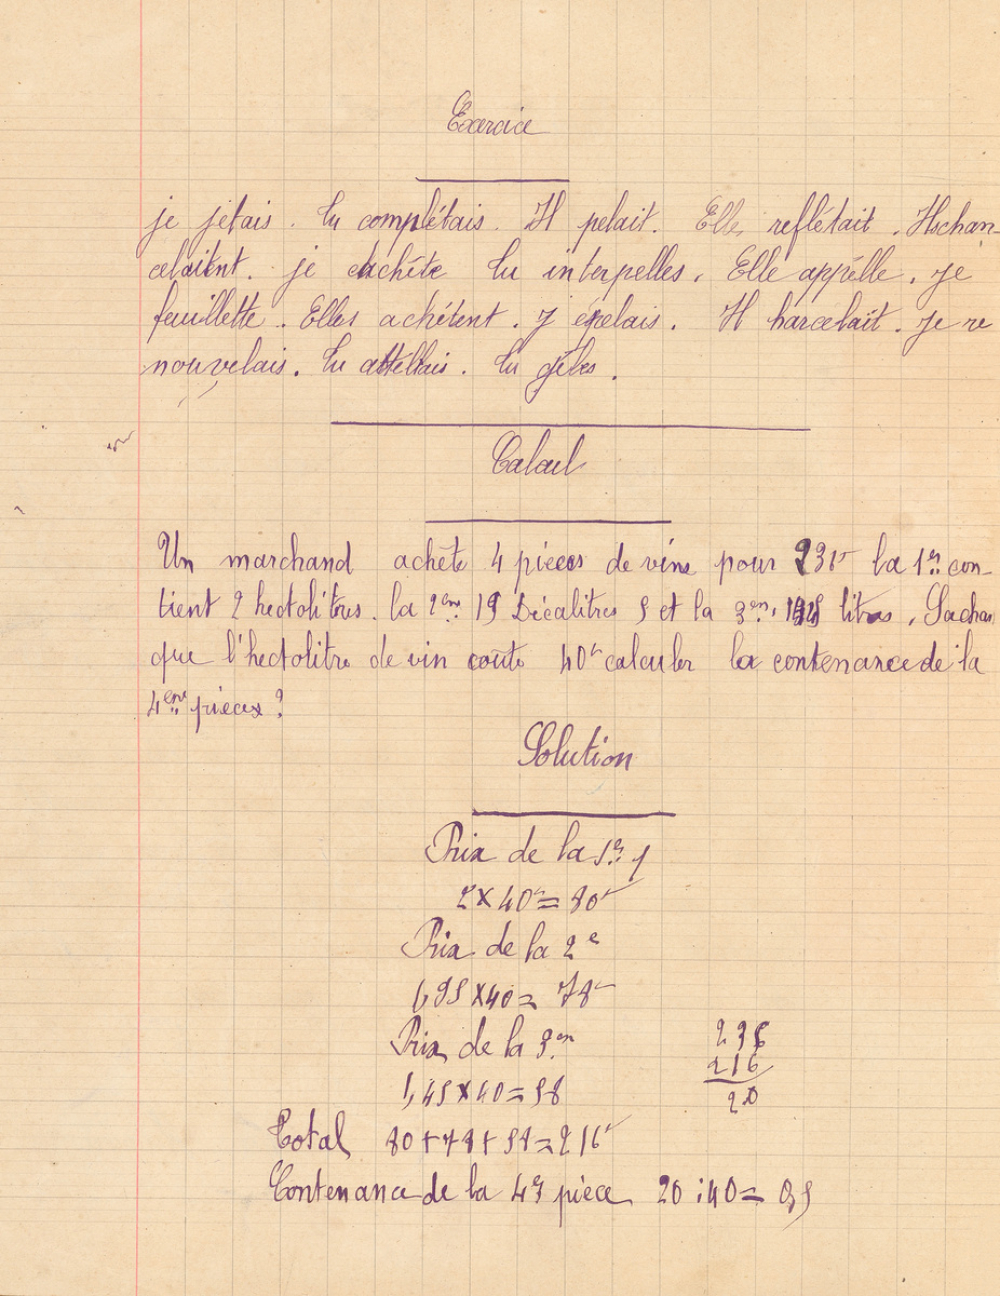 Exercice
je jetais. Tu complétais. Il pelait. Elle reflétait. Ils chan-
celaient. je cachète tu interpelles. Elle appelle. je
feuillette. Elles achètent. J'épelais. Il harcelait. Je re
nouvelais. Tu attellais. Tu gèles.
Calcul
Un marchand achète 4 pièces de vins pour 236f la 1re con-
tient 2 hectolitres. la 2em 19 Décalitres 5 et la 3em, 145 litres. Sachan
que l'hectolitre de vin coûte 40f calculer la contenance de la
4em pièces?
Solution
Prix de la 1re
2 x 40f = 80f
Prix de la 2e
1,95 x 40 = 78f
Prix de la 3em
1,45 x 40 = 58
236
216
20
Total 80 + 78 + 58 = 216f
Contenance de la 4e pièce 20 : 40 = 0,5